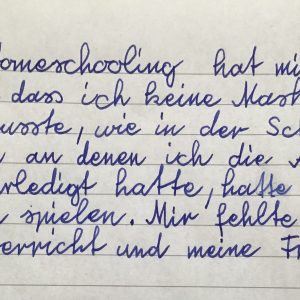 Homeschooling hat mi
dass ich keine Mask
usste, wie in der Sch
an denen ich die
erledigt hatte, hatte
spielen. Mir fehlte
erricht und meine Fr